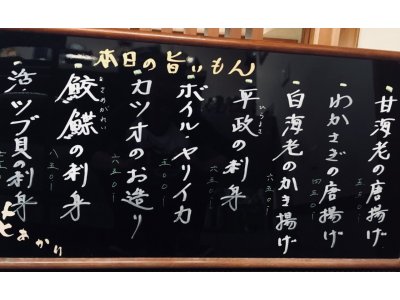 本日の旨いもん
甘海老の唐揚げ
わかさぎの唐揚げ
四五〇-
白海老のかき揚げ
六五〇-
ひらまさ
平政の刺身
六五〇-
ボイルヤリイカ
五五〇-
カツオのお造り
六五〇-
さめがれい
鮫鰈の刺身
八五〇-
活ツブ貝の刺身
あかり